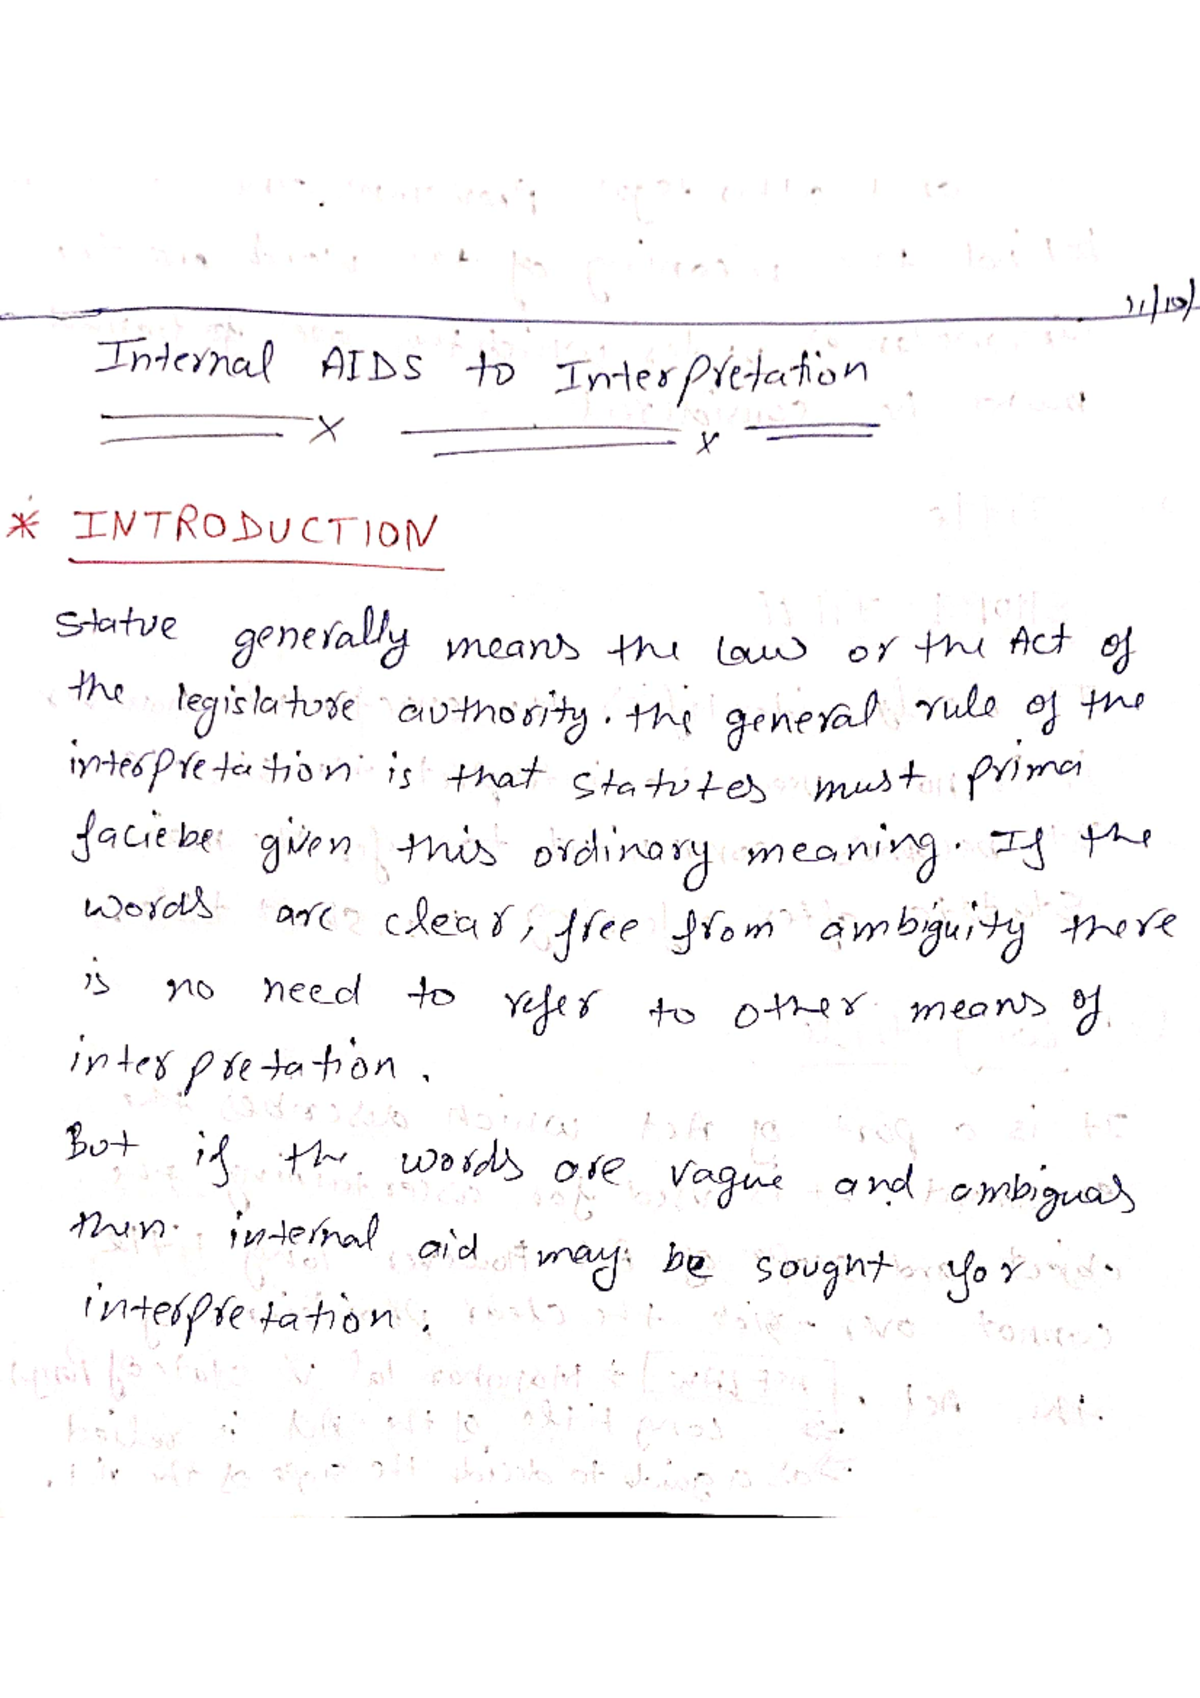 11/10/
Internal AIDS to Interpretation
* INTRODUCTION
Statue generally means the Law or the Act of
the legislature authority. the general rule of the
interpretation is that statutes must prima
facie be given this ordinary meaning. If the
words are clear, free from ambiguity there
is no need to refer to other means of
interpretation.
But if the words are vague and ambiguas
then internal aid may be sought for
interpretation.